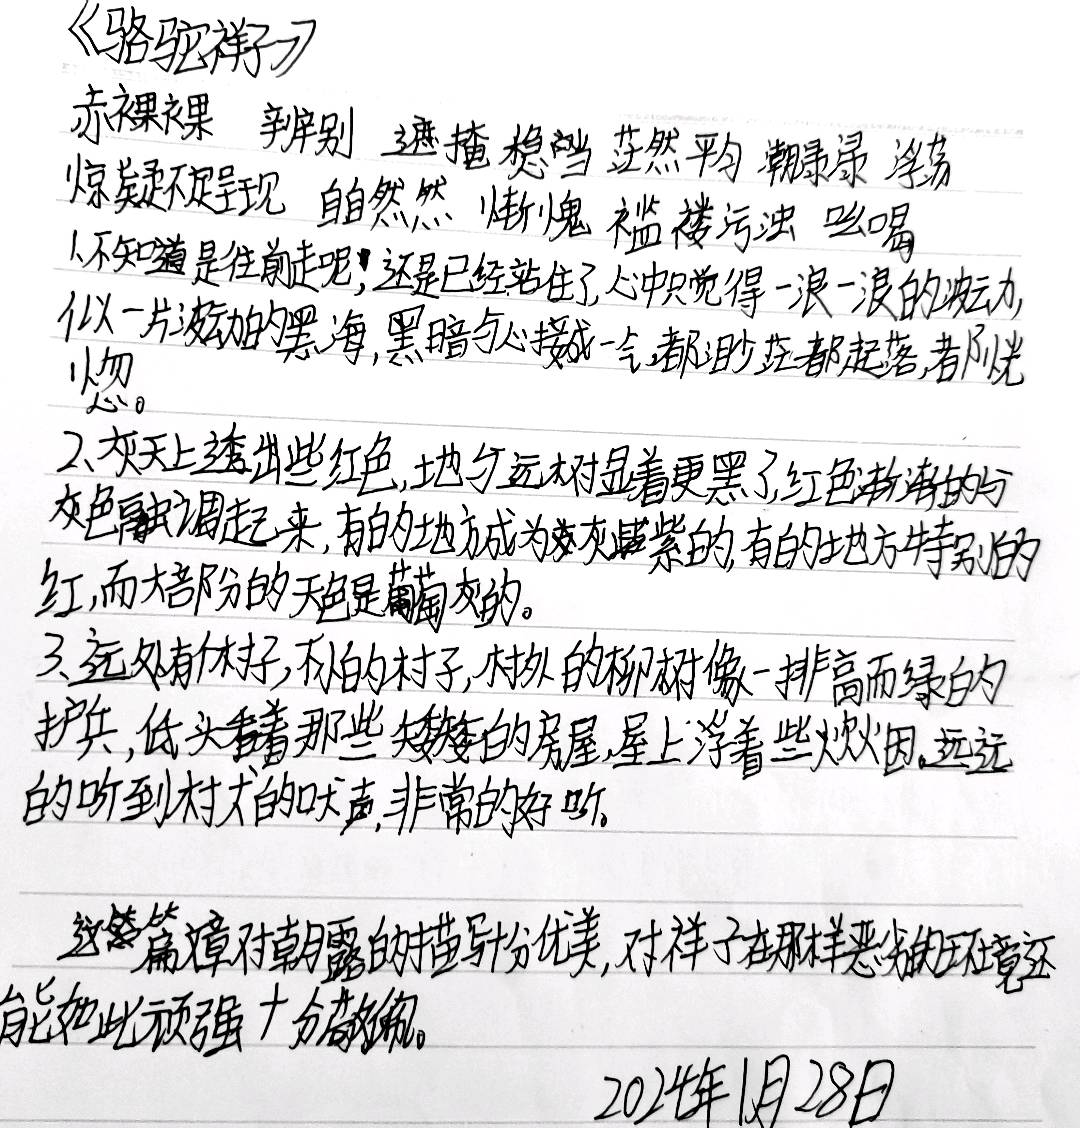 《骆驼祥子》
赤裸裸 辨别 遮掩 稳当 茫然 平均 潮渌渌 浮荡
惊疑不定 呈现 自自然然 惭愧 褴褛 污浊 吆喝
1、不知道是往前走呢,还是已经站住了,心中只觉得一浪一浪的波动,
似一片波动的黑海,黑暗与心接成一气,都渺茫,都起落,都恍
惚。
2、灰天上透出些红色,地与远树显着更黑了,红色渐渐的与
灰色融调起来,有的地方成为灰紫的,有的地方特别的
红,而大部分的天色是葡萄灰的。
3、远处有个村子,不小的村子,村外的柳树像一排高而绿的
护兵,低头看着那些矮矮的房屋,屋上浮着些炊烟。远远
的听到村犬的吠声,非常的好听。
这篇文章对朝露的描写十分优美,对祥子在那样恶劣的环境还
能如此顽强十分敬佩。
2024年1月28日